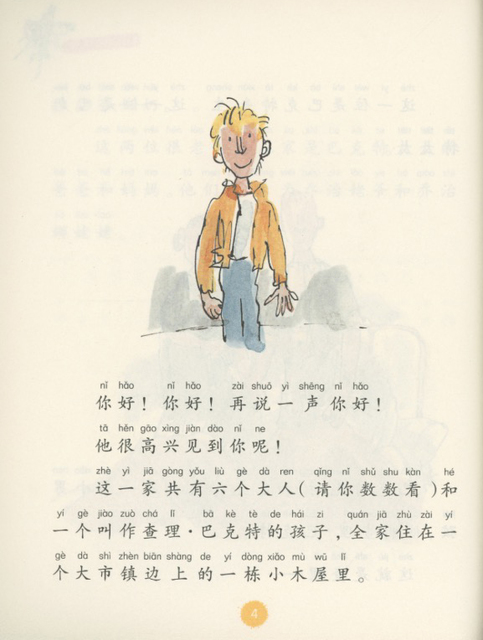 nǐ hǎo nǐ hǎo zài shuō yì shēng nǐ hǎo
你好！你好！再说一声你好！
tā hěn gāo xìng jiàn dào nǐ ne
他很高兴见到你呢！
zhè yì jiā gòng yǒu liù gè dà ren qǐng nǐ shǔ shu kàn hé
这一家共有六个大人（请你数数看）和
yí gè jiào zuò chá lǐ bā kè tè de hái zi quán jiā zhù zài yí
一个叫作查理·巴克特的孩子，全家住在一
gè dà shì zhèn biān shàng de yí dòng xiǎo mù wū lǐ
个大市镇边上的一栋小木屋里。
4